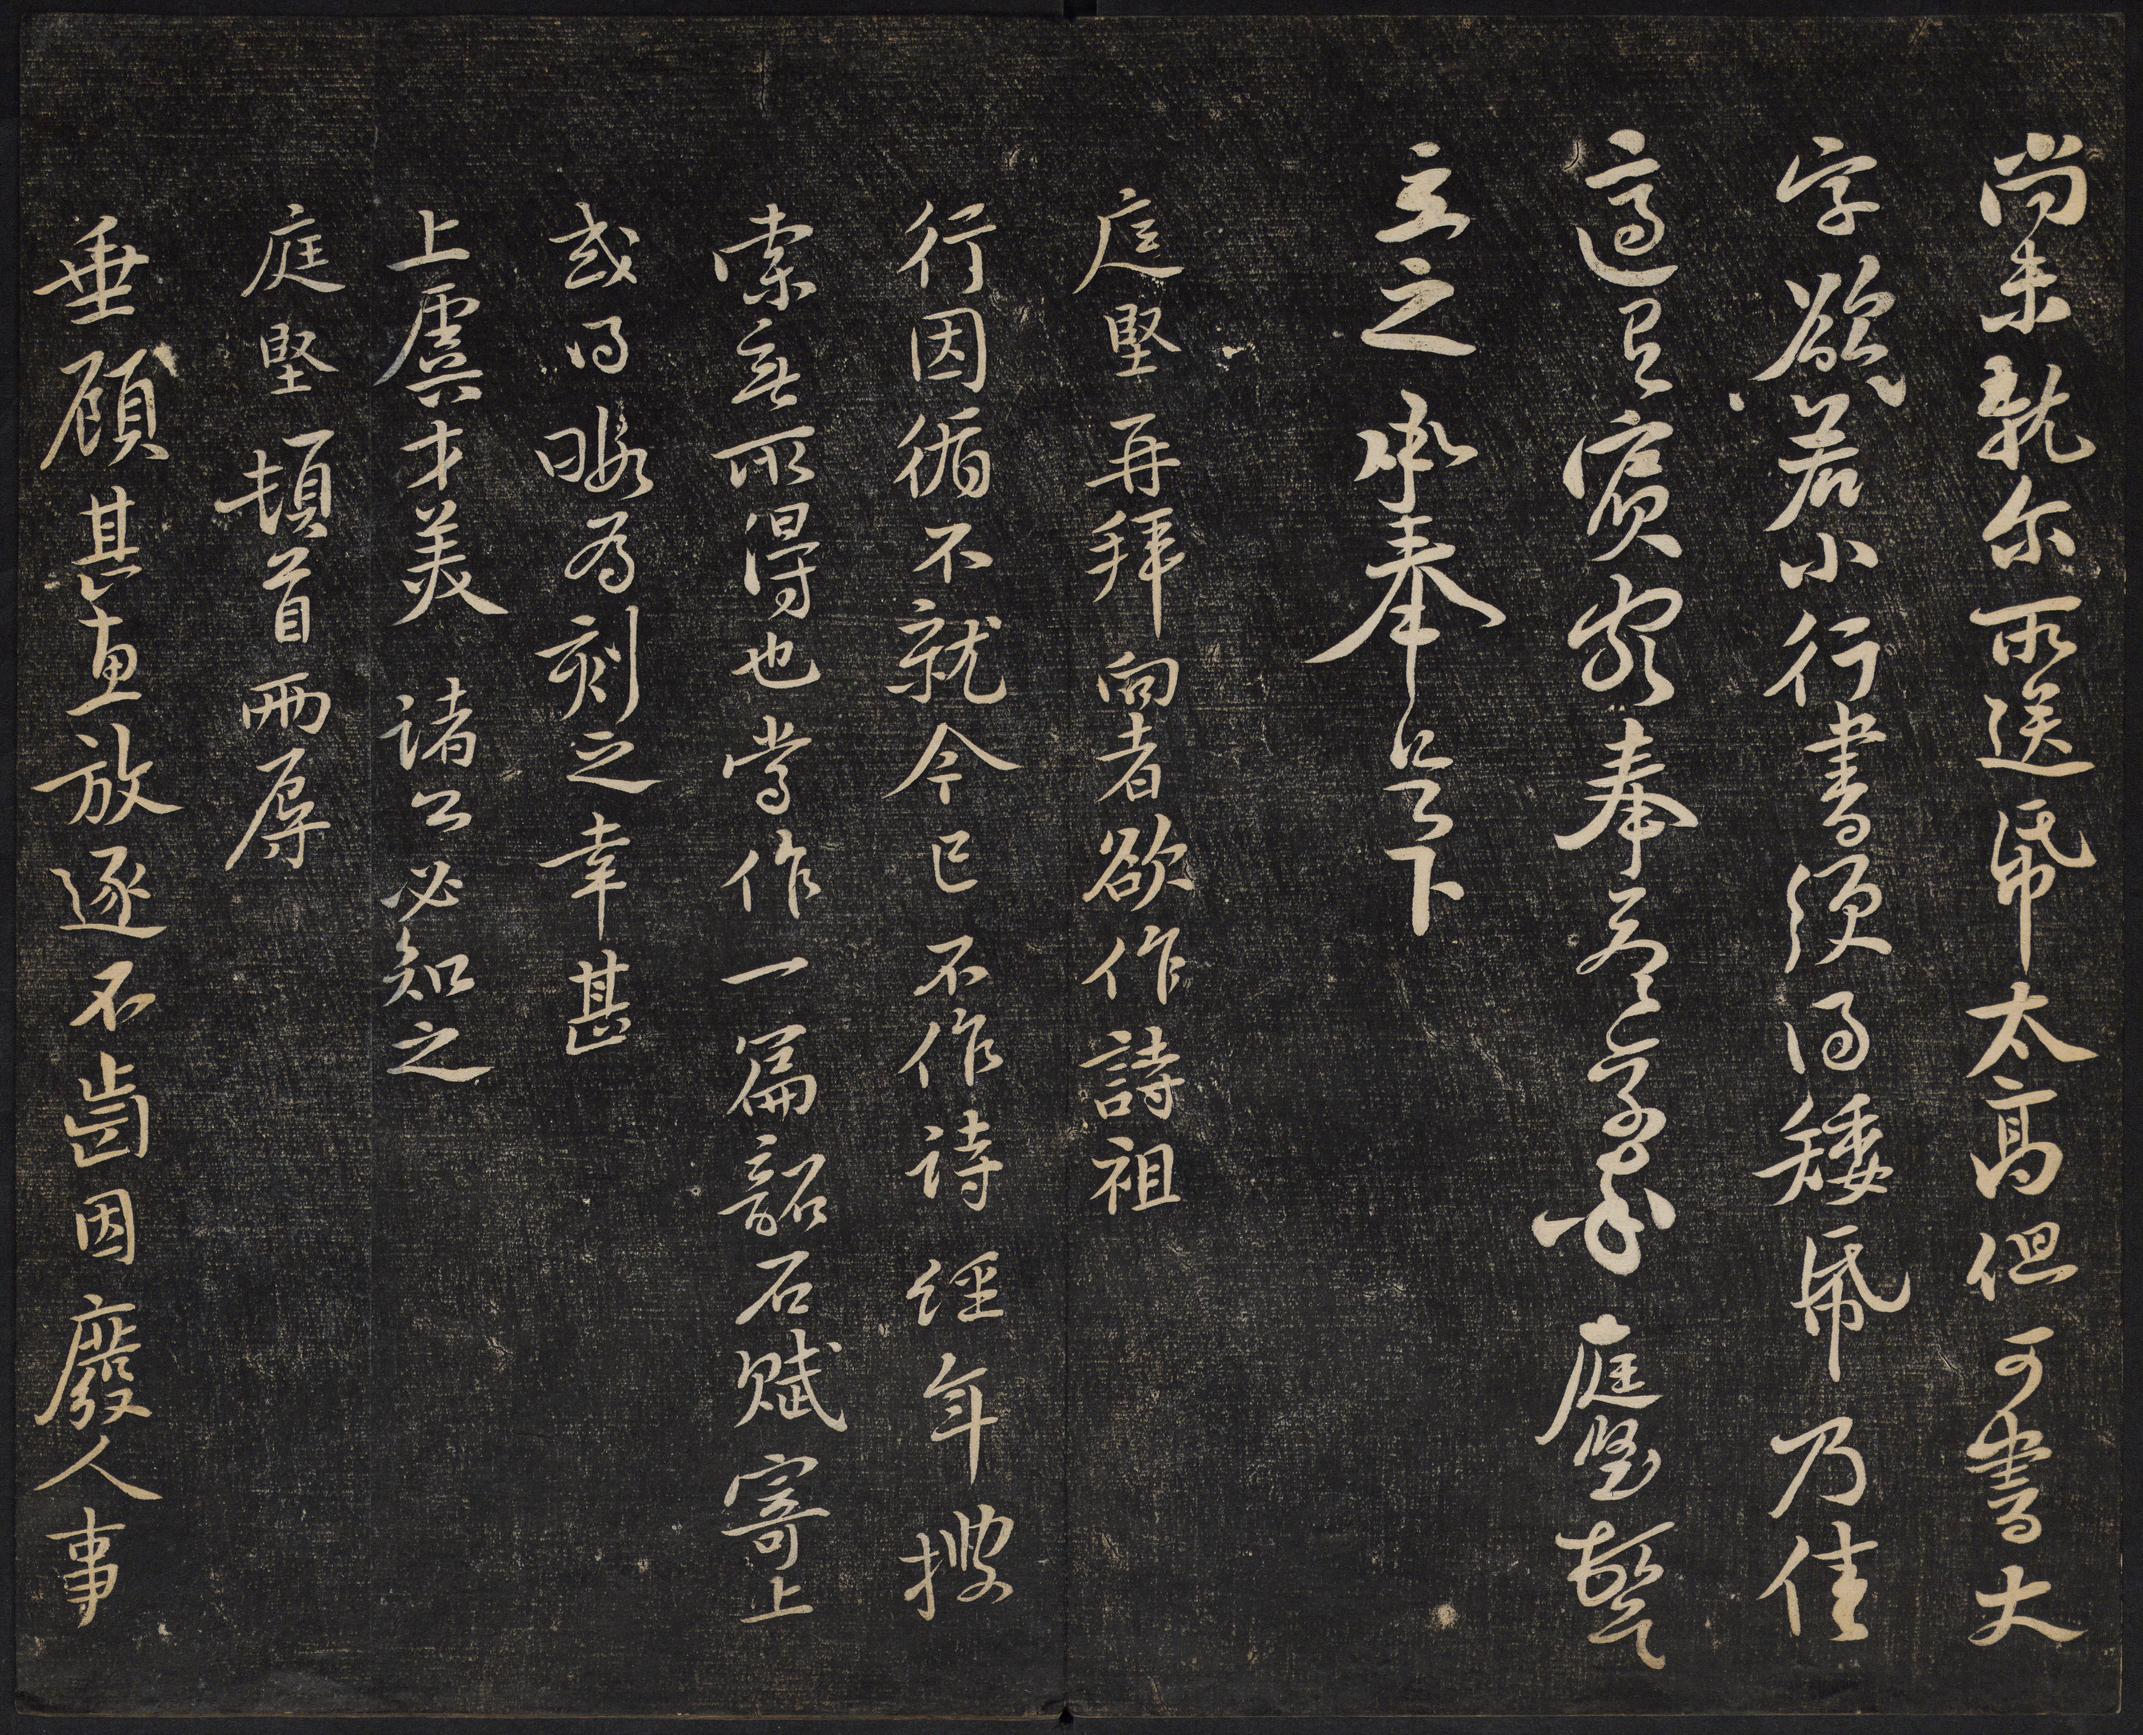 尚未就尔所送帋太高但可書大
字欲若小行書須得矮帋乃佳
適有賓客奉答草草 庭堅頓首
立之承奉足下
庭堅再拜向者欲作詩祖
行因循不就今已不作诗经年搜
索無所得也當作一篇韶石賦寄上
或得暇為刻之幸甚
上虞才美 诸公必知之
庭堅頓首兩辱
垂顧甚惠放逐不齒因廢人事